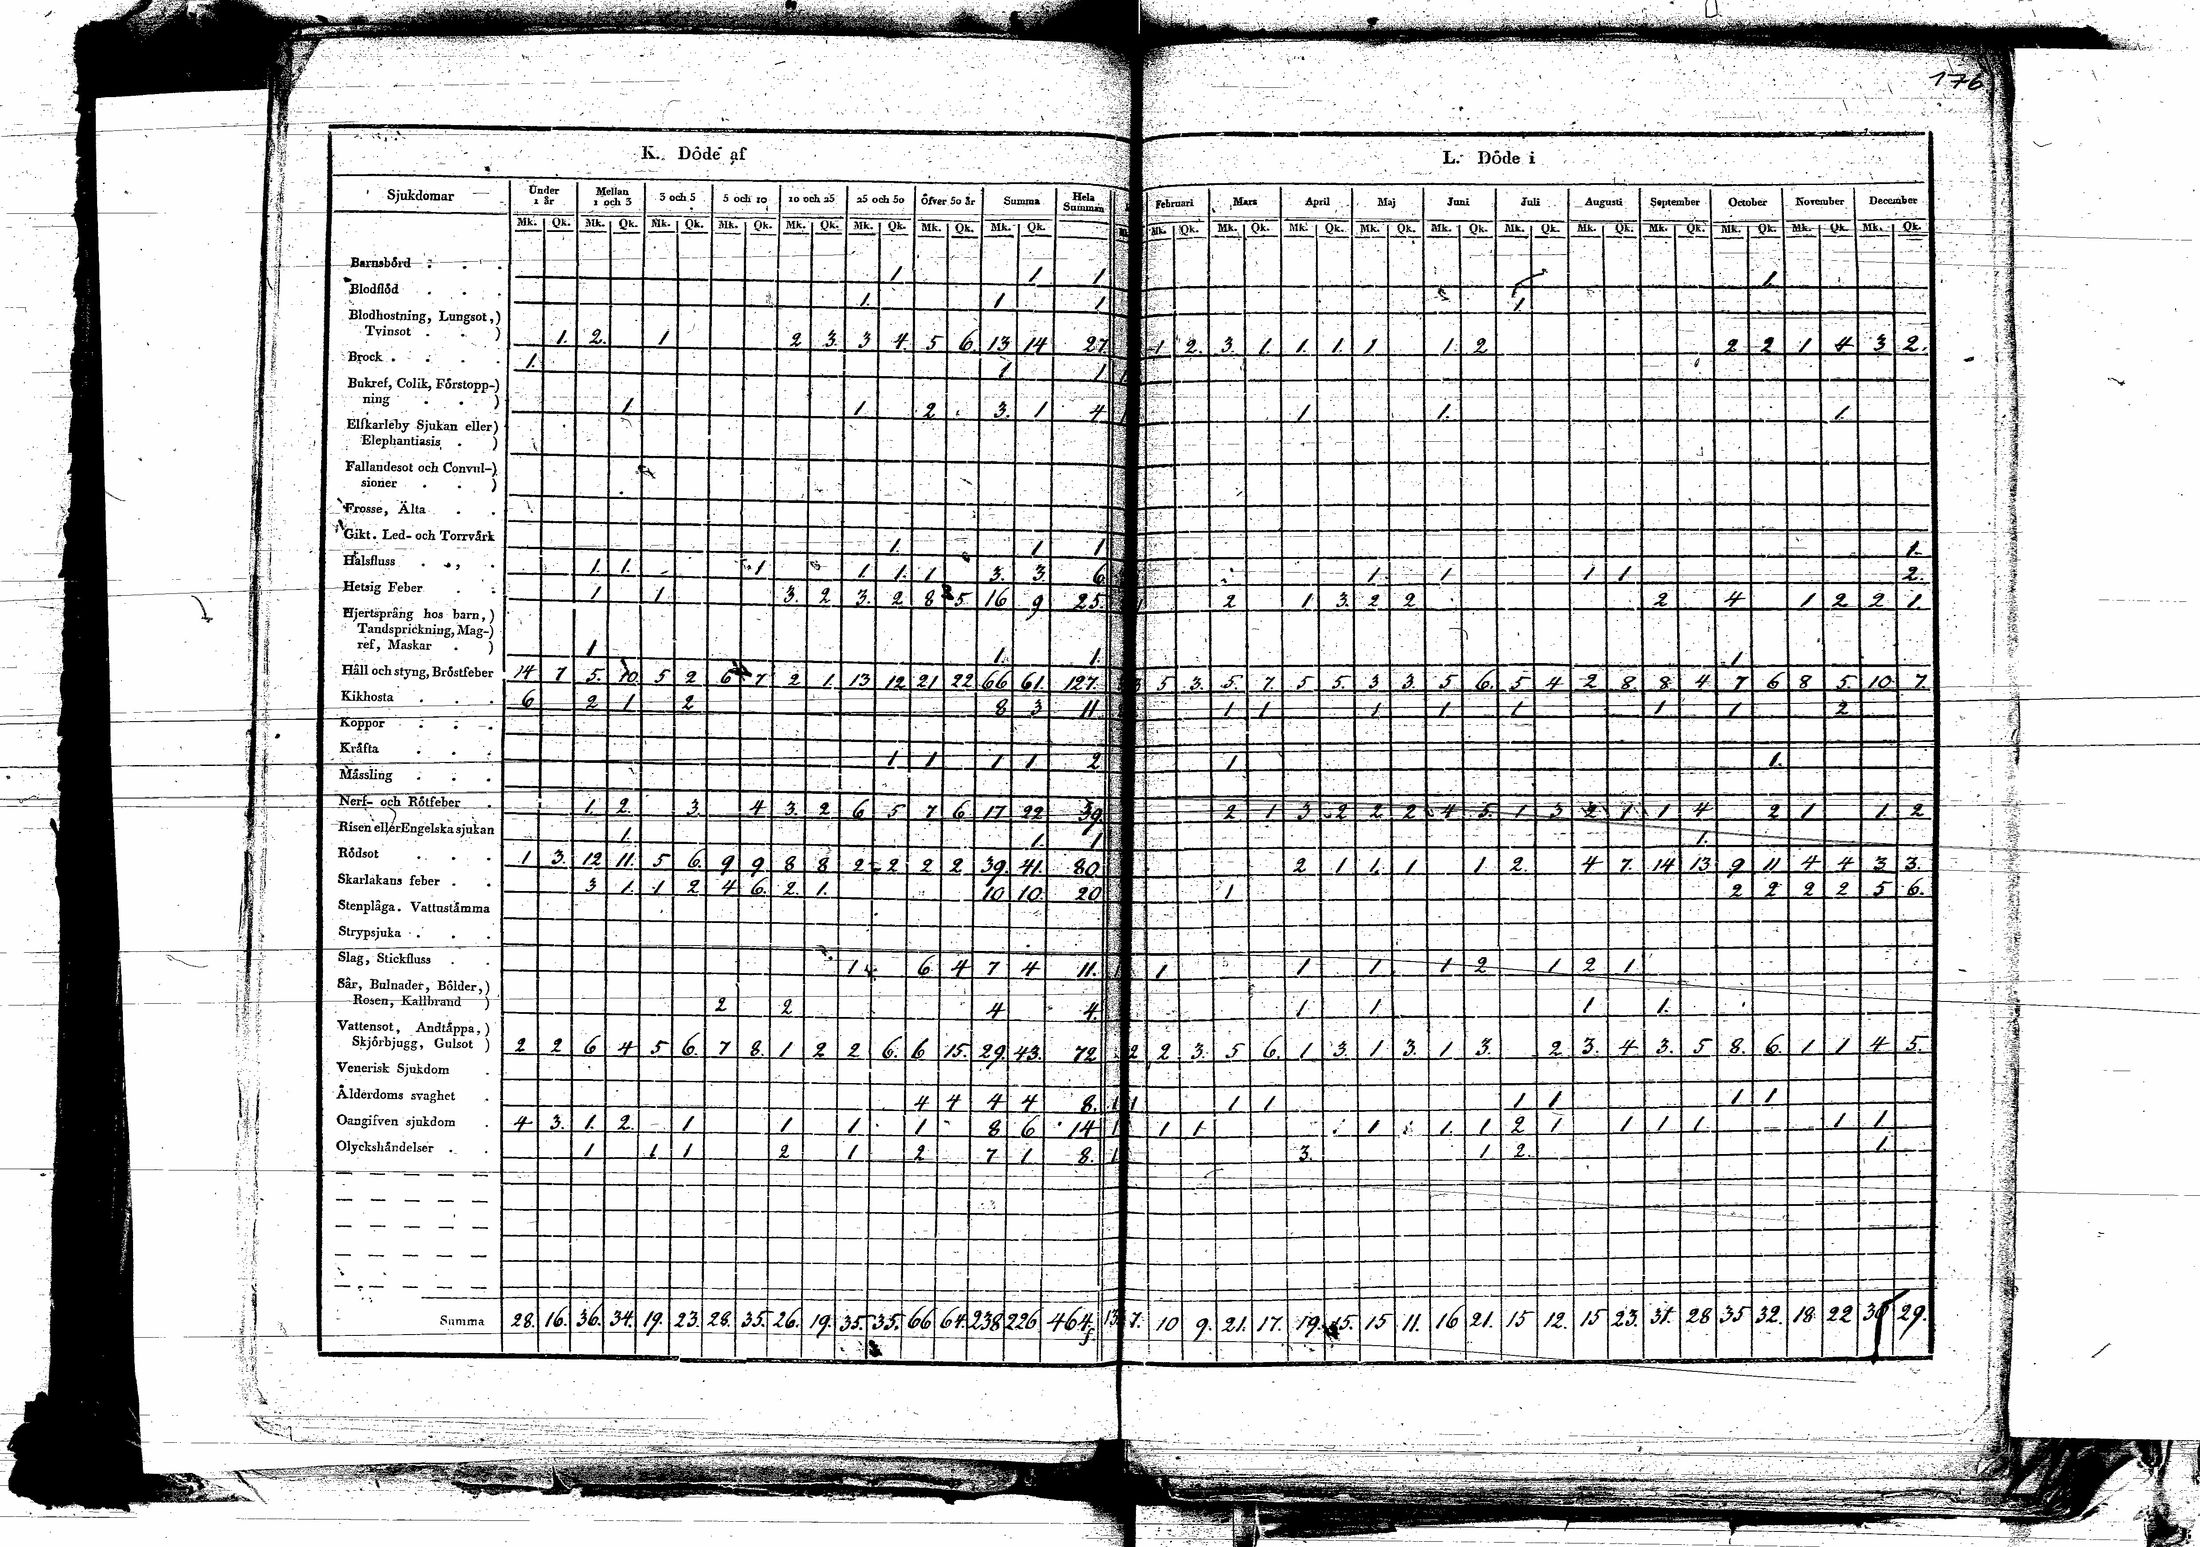 176
K. Döde af
L. Döde i
Sjukdomar Under 1 år Mellan 1 och 3 3 och 5 5 och 10 10 och 25 25 och 50 öfver 50 år Summa Hela Summan Februari Mars April Maj Juni Juli Augusti September October November December
Mk. Qk. Mk. Qk. Mk. Qk. Mk. Qk. Mk. Qk. Mk. Qk. Mk. Qk. Mk. Qk. Mk. Qk. Mk. Qk. Mk. Qk. Mk. Qk. Mk. Qk. Mk. Qk. Mk. Qk. Mk. Qk. Mk. Qk. Mk. Qk. Mk. Qk.
Barnsbörd . . . 1 1 1 1
Blodflöd . . . 1. 1 1 1.
Blodhostning, Lungsot,)
Tvinsot . . ) 1. 2. 1 2 3. 3 4. 5 6. 13 14 27 1 2. 3. 1. 1. 1. 1 1. 2 2 2 1 4 3 2.
Brock . . . . 1. 1 1 1
Bukref, Colik, Förstopp-)
ning . . ) 1 1. 2 3. 1 4 1 1 1. 1.
Elfkarleby Sjukan eller)
Elephantiasis . )
Fallandesot och Convul-)
sioner . . )
Frosse, Älta . .
Gikt. Led- och Torrvärk 1. 1 1 1.
Halsfluss . . . 1. 1. 1 1. 1. 1 3. 3. 6 1. 1 1 1 2.
Hetsig Feber . . 1 1 3. 2 3. 2 8 5 16 9 25. 1 2 1 3. 2 2 2 4 1 2 2 1.
Hjertsprång hos barn,)
Tandsprickning, Mag-)
ref, Maskar . ) 1 1. 1. 1
Håll och styng, Bröstfeber 14 7 5. 10. 5 2 6 7 2 1. 13 12 21 22 66 61. 127. 3 5 3. 5. 7. 5 5. 3 3. 5 6. 5 4 2 8. 8 4 7 6 8 5. 10 7.
Kikhosta . . . 6 2 1 2 8 3 11 1 1 1 1 1 1 1 2
Koppor . . .
Kräfta . . . 1 1 1 1 2 1 1.
Mässling . . .
Nerf- och Rötfeber . 1. 2. 3. 4 3. 2 6 5 7 6 17 22 39 2 1 3 2 2 2 4 5. 1 3 2 1 1 4 2 1 1. 2
Risen eller Engelska sjukan 1. 1. 1 1.
Rödsot . . . 1 3. 12 11. 5 6. 9 9 8 8 2 2 2 2 39. 41. 80 2 1 1. 1 1 2. 4 7. 14 13 9 11 4 4 3 3.
Skarlakans feber . . 3 1. 1 2 4 6. 2. 1. 10 10. 20 1 2 2 2 2 5 6.
Stenplåga. Vattustämma
Strypsjuka . . .
Slag, Stickfluss . . 1 6 4 7 4 11. 1 1 1 1 1 2 1 2 1
Sår, Bulnader, Bölder,)
Rosen, Kallbrand ) 2 2 4 4. 1 1 1 1.
Vattensot, Andtäppa,)
Skjörbjugg, Gulsot ) 2 2 6 4 5 6. 7 8. 1 2 2 6. 6 15. 29. 43. 72 2 2. 3. 5 6. 1 3. 1 3. 1 3. 2 3. 4 3. 5 8. 6. 1 1 4 5.
Venerisk Sjukdom .
Ålderdoms svaghet . 4 4 4 4 8. 1 1 1 1 1 1 1 1
Oangifven sjukdom . 4 3. 1. 2. 1 1 1. 1 8 6 14 1 1 1 1 1. 1 2 1 1 1 1 1 1.
Olyckshändelser . . 1 1 1 2 1 2 7 1 8. 1 3. 1 2. 1.
Summa 28. 16. 36. 34. 19. 23. 28. 35. 26. 19. 35. 35. 66 64. 238 226 464. 13. 7. 10 9. 21. 17. 19. 15. 15 11. 16 21. 15 12. 15 23. 31. 28 35 32. 18. 22 36 29.